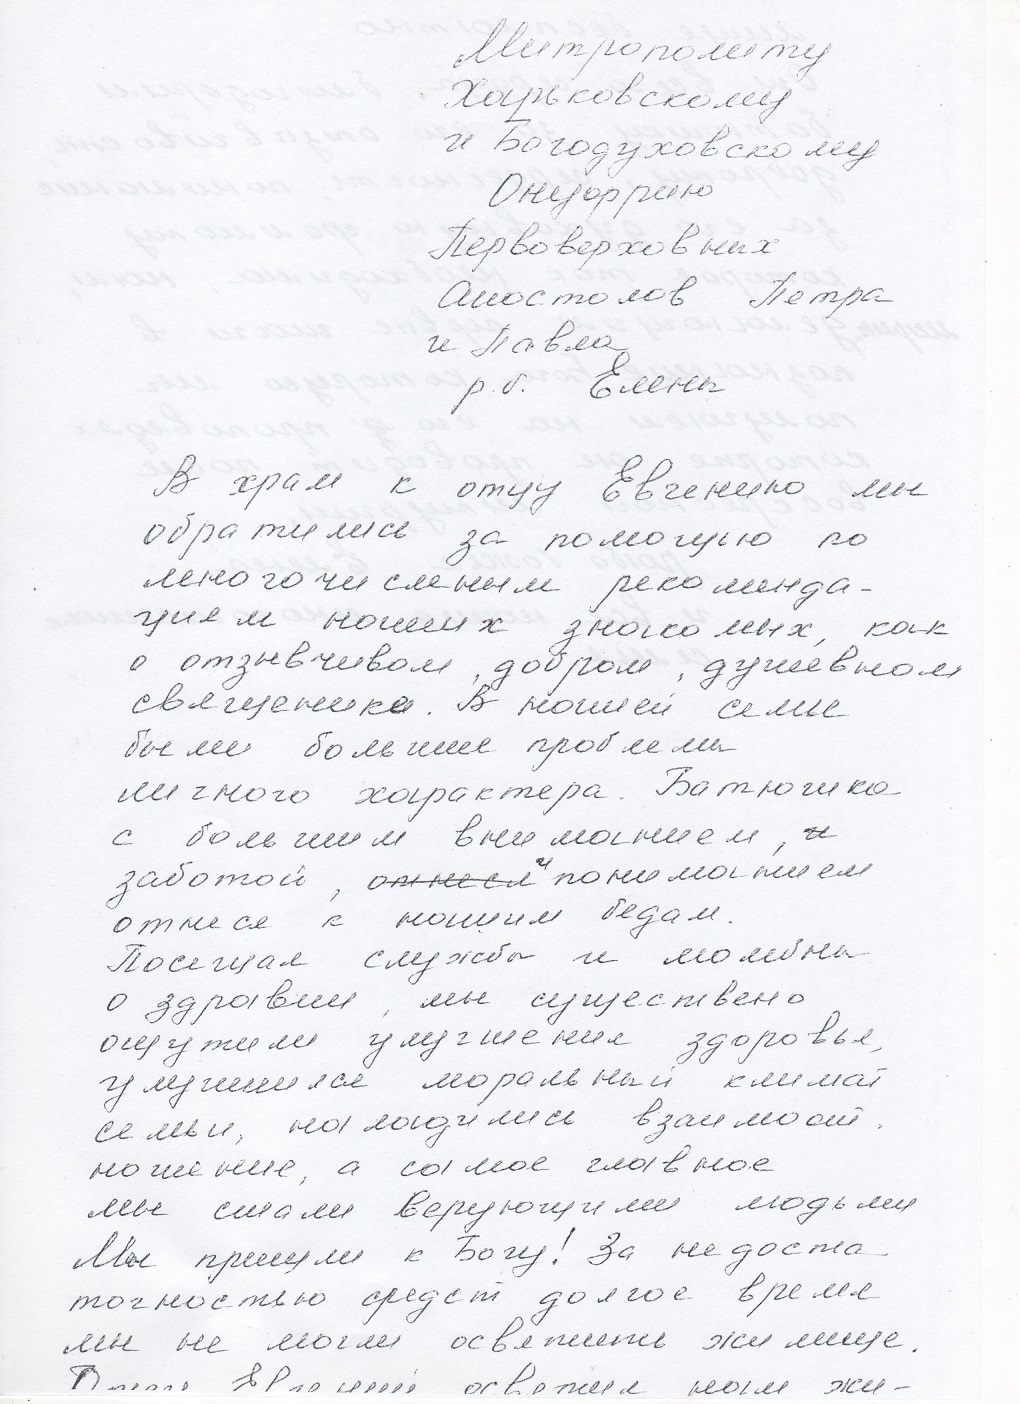 Митрополиту
Харьковскому
и Богодуховскому
Онуфрию
Первоверховных
Апостолов Петра
и Павла
р.б. Елены
В храм к отцу Евгению мы
обратились за помощью по
многочисленым рекоменда-
циям наших знакомых, как
о отзывчивом, добром, душевном
священике. В нашей семье
были большие проблемы
личного характера. Батюшка
с большим вниманием, и
заботой, отнесл и пониманием
отнесся к нашим бедам.
Посещая службы и молебны
о здравии, мы существено
ощутили улучшения здоровья,
улучшился моральный климат
семьи, наладились взаимоот.
ношение, а самое главное
мы стали верующими людьми
Мы пришли к Богу! За недоста
точностью средст долгое время
мы не могли освятить жилище.
Отец Евгений освятил нам жи-